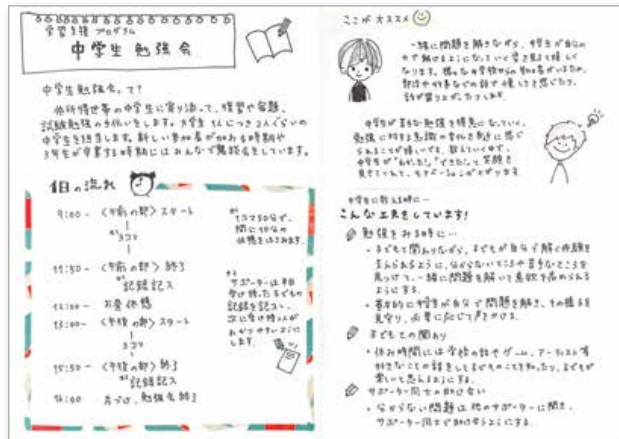 学習支援プログラム
中学生 勉強会
中学生勉強会って？
低所得世帯の中学生に寄り添って、復習や宿題、
試験勉強の手伝いをします。大学生1人につき2人ぐらいの
中学生を担当します。新しい参加者が加わる時期や
3年生が卒業する時期にはみんなで懇談会をしています。
1日の流れ
9:00- 〈午前の部〉スタート
3コマ
11:50- 〈午前の部〉終了
記録記入
12:00- お昼休憩
13:00- 〈午後の部〉スタート
3コマ
15:50- 〈午後の部〉終了
記録記入
16:00 片づけ、勉強会終了
1コマ50分で、
間に10分の
休憩をはさみます。
サポーターは毎日
受け持った子どもの
記録を記入し、
次に受け持つ人が
わかりやすいように
します。
ここがオススメ
一緒に問題を解きながら、中学生が自らの
力で解けるようになっていく姿を見ると嬉しく
なります。様々な中学校からの参加者がいるため、
部活や行事などの話で
話が盛り上がったりします。
中学生が苦手な勉強を得意になっていく、
勉強に対する意識の変化を身近に感じ
られることが嬉しいです。教えていく中で、
中学生が"わかった！""できた！"と笑顔を
見せてくれて、モチベーションが上がります。
中学生に教える時に…
こんな工夫をしています！
勉強をみる時に…
・子どもと関わりながら、子どもが自分で解く体験を
きるように、分からないところや苦手なところを
見つけて、一緒に問題を解いて意欲を高められる
ようにする。
・基本的に中学生が自分で問題を解き、その様子を
見守り、必要に応じて声をかける。
子どもとの関わり
・休み時間には学校の話やゲーム、アーティスト等
好きなことの話をして子どものことを知ったり、子どもが
楽しいと思えるようにする。
サポーター同士の助け合い
・分からない問題は他のサポーターに聞き、
サポーター同士で助け合うようにする。